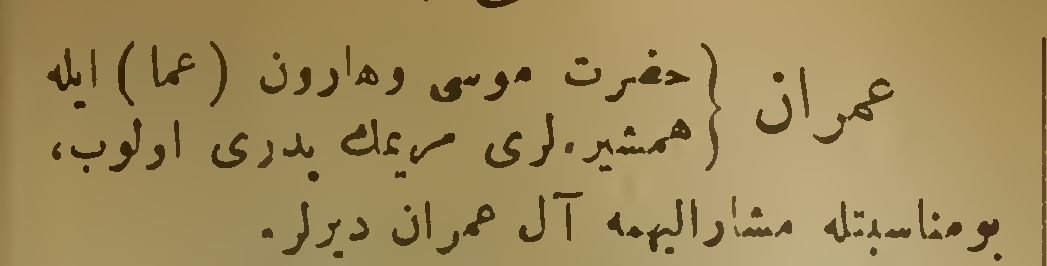 عمران { حضرت موسى وهارون (عما) ايله
همشيره‌لرى مريمك پدرى اولوب،
بومناسبتله مشاراليهمه آل عمران ديرلر.